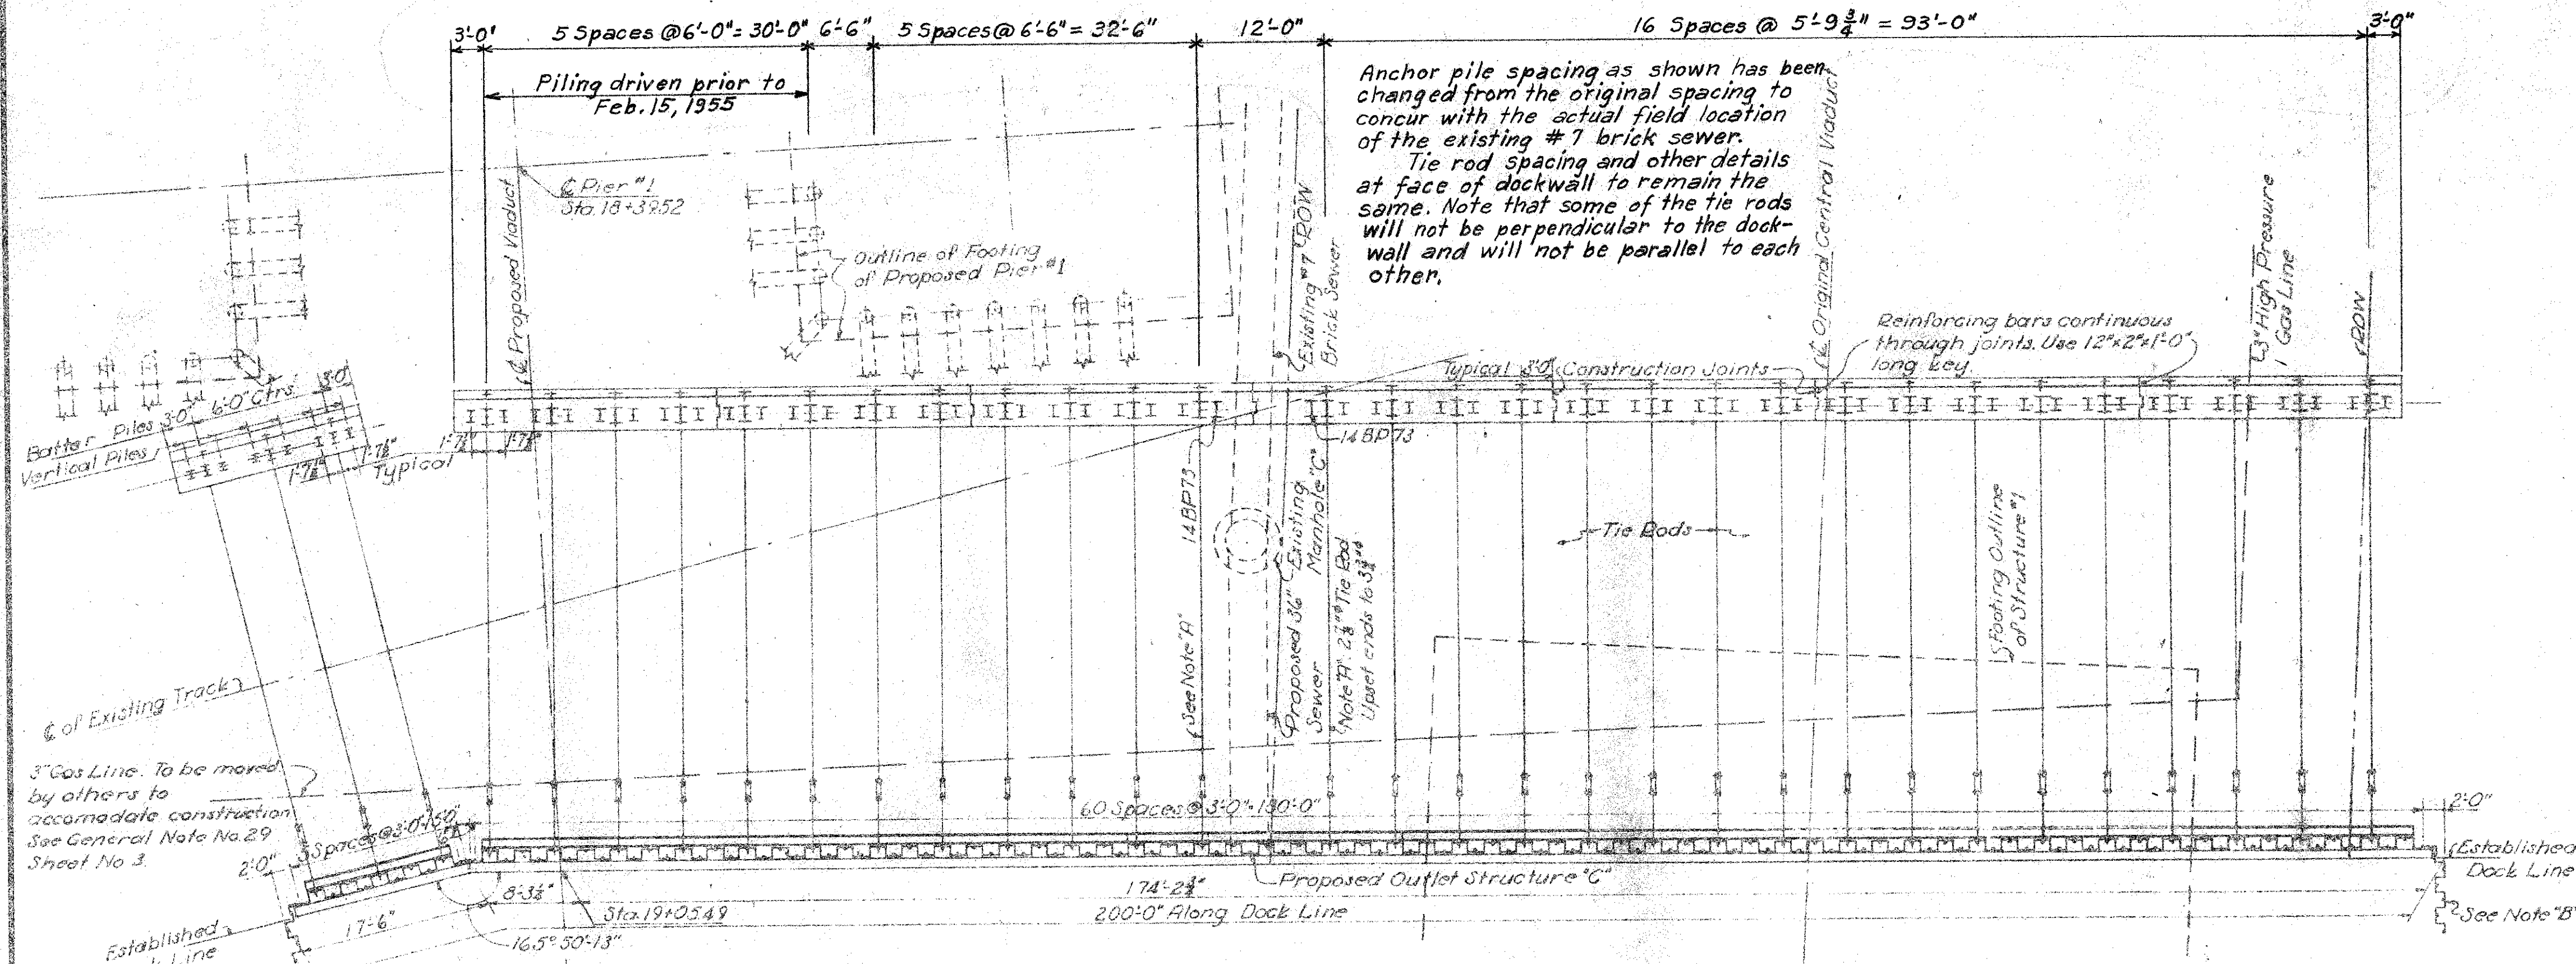 3'-0" 5 Spaces @6'-0"= 30'-0" 6'-6" 5 Spaces@ 6'-6"= 32'-6" 12'-0" 16 Spaces @ 5'-9 3/4" = 93'-0" 3'-0"
Piling driven prior to
Feb. 15, 1955
Anchor pile spacing as shown has been
changed from the original spacing to
concur with the actual field location
of the existing #7 brick sewer.
Tie rod spacing and other details
at face of dockwall to remain the
same. Note that some of the tie rods
will not be perpendicular to the dock-
wall and will not be parallel to each
other.
℄ Pier #1
Sta. 18+39.52
℄ Proposed Viaduct
Outline of Footing
of Proposed Pier #1
Existing #7
Brick Sewer
ROW
℄ Original Central Viaduct
3" High Pressure
Gas Line
ROW
Reinforcing bars continuous
through joints. Use 12"x2"x1'-0"
long key.
Typical 3'-0" Construction Joints
Batter Piles 3'-0" 6'-0" Ctrs. 3'-0"
Vertical Piles
1'-7 1/8" 1'-7 1/8"
Typical
1'-7 1/8" 1'-7 1/8"
14BP73
14BP73
See Note "A"
Existing
Manhole "C"
Proposed 36"
Sewer
Note "A": 2 7/8"ø Tie Rod
Upset ends to 3 3/4"ø
Tie Rods
Footing Outline
of Structure #1
℄ of Existing Track
3" Gas Line. To be moved
by others to
accomodate construction
See General Note No. 29
Sheet No 3.
5 Spaces@3'-0"=15'-0"
2'-0"
60 Spaces@3'-0"=180'-0"
2'-0"
Established
Dock Line
See Note "B"
Proposed Outlet Structure "C"
174'-2 3/4"
200'-0" Along Dock Line
8'-3 1/2"
Sta. 19+05.49
165°50'-13"
17'-6"
Established
Line